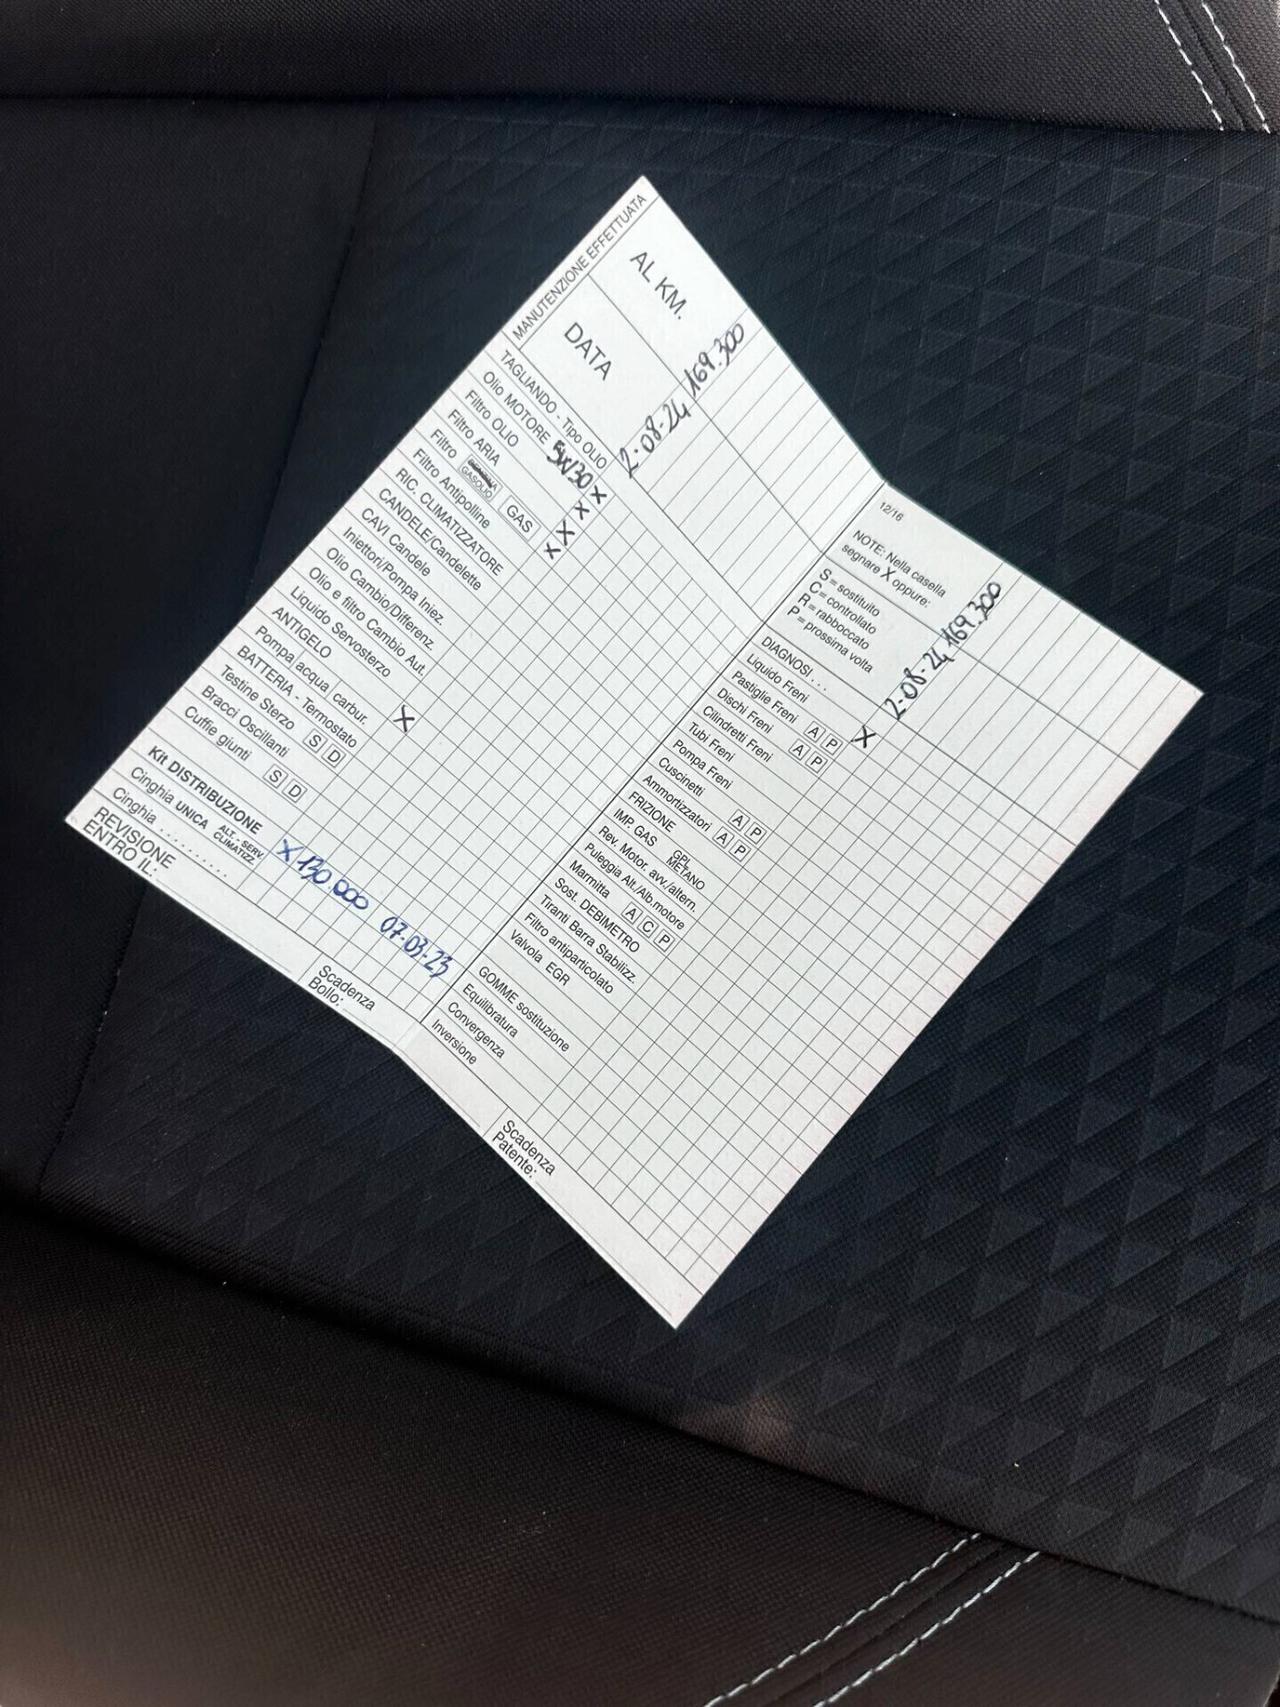 MANUTENZIONE EFFETTUATA
AL KM.
DATA
169.300
2.08.24
TAGLIANDO - Tipo OLIO
Olio MOTORE 5W30 X
Filtro OLIO X
Filtro ARIA X
Filtro GASOLIO GAS X
Filtro Antipolline
RIC. CLIMATIZZATORE
CANDELE/Candelette
CAVI Candele
Iniettori/Pompa Iniez.
Olio Cambio/Differenz.
Olio e filtro Cambio Aut.
Liquido Servosterzo
ANTIGELO
Pompa acqua carbur.
BATTERIA - Termostato X
Testine Sterzo S D
Bracci Oscillanti
Cuffie giunti S D
Kit DISTRIBUZIONE X 130 000 07-03-23
Cinghia UNICA ALT. - SERV. CLIMATIZZ.
Cinghia ..........
REVISIONE
ENTRO IL:
Scadenza
Bollo:
12/16
NOTE: Nella casella
segnare X oppure:
S = sostituito
C = controllato
R = rabboccato
P = prossima volta
2.08.24 169.300
DIAGNOSI . . .
Liquido Freni X
Pastiglie Freni A P
Dischi Freni A P
Cilindretti Freni
Tubi Freni
Pompa Freni
Cuscinetti A P
Ammortizzatori A P
FRIZIONE
IMP. GAS GPL METANO
Rev. Motor. avv./altern.
Puleggia Alt./Alb.motore
Marmitta A C P
Sost. DEBIMETRO
Tiranti Barra Stabilizz.
Filtro antiparticolato
Valvola EGR
GOMME sostituzione
Equilibratura
Convergenza
Inversione
Scadenza
Patente: